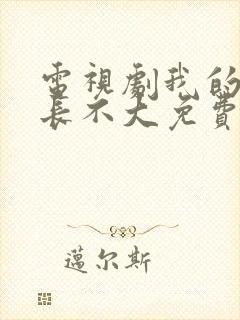 電視劇我的
長不大免費
邁尔斯